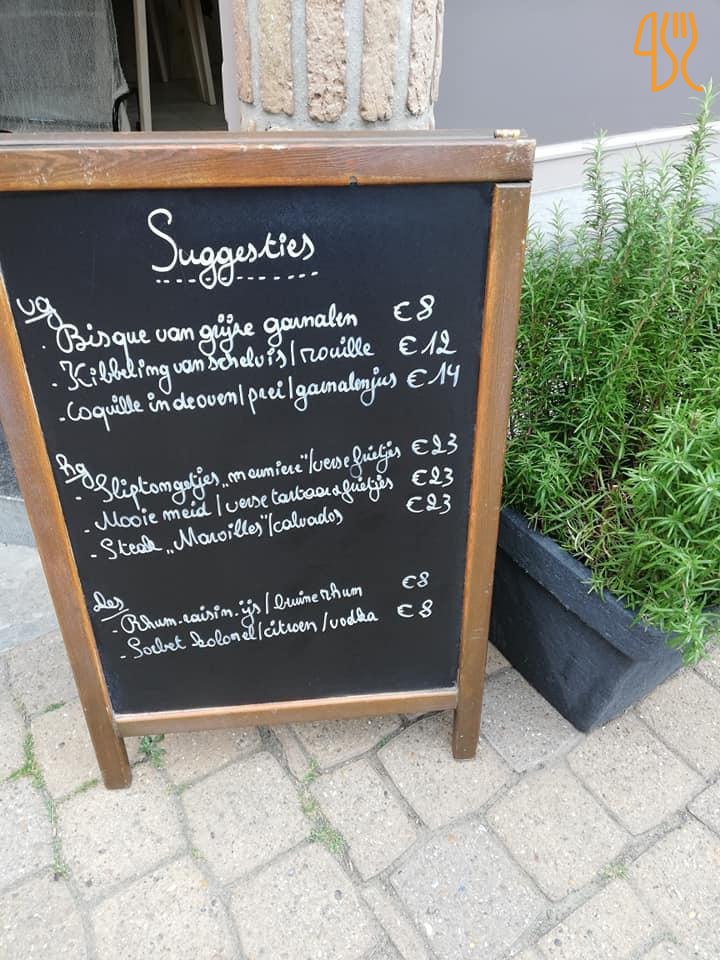 Suggesties
vg
- Bisque van grijze garnalen €8
- Kibbeling van schelvis/rouille €12
- Coquille in de oven/prei/garnalenjus €14
Hg
- Sliptongetjes „meuniere"/verse frietjes €23
- Mooie meid/verse tartaar & frietjes €23
- Steak „Marvilles"/calvados €23
des
- Rhum-raisin ijs/bruine rhum €8
- Sorbet kolonel/citroen/vodka €8